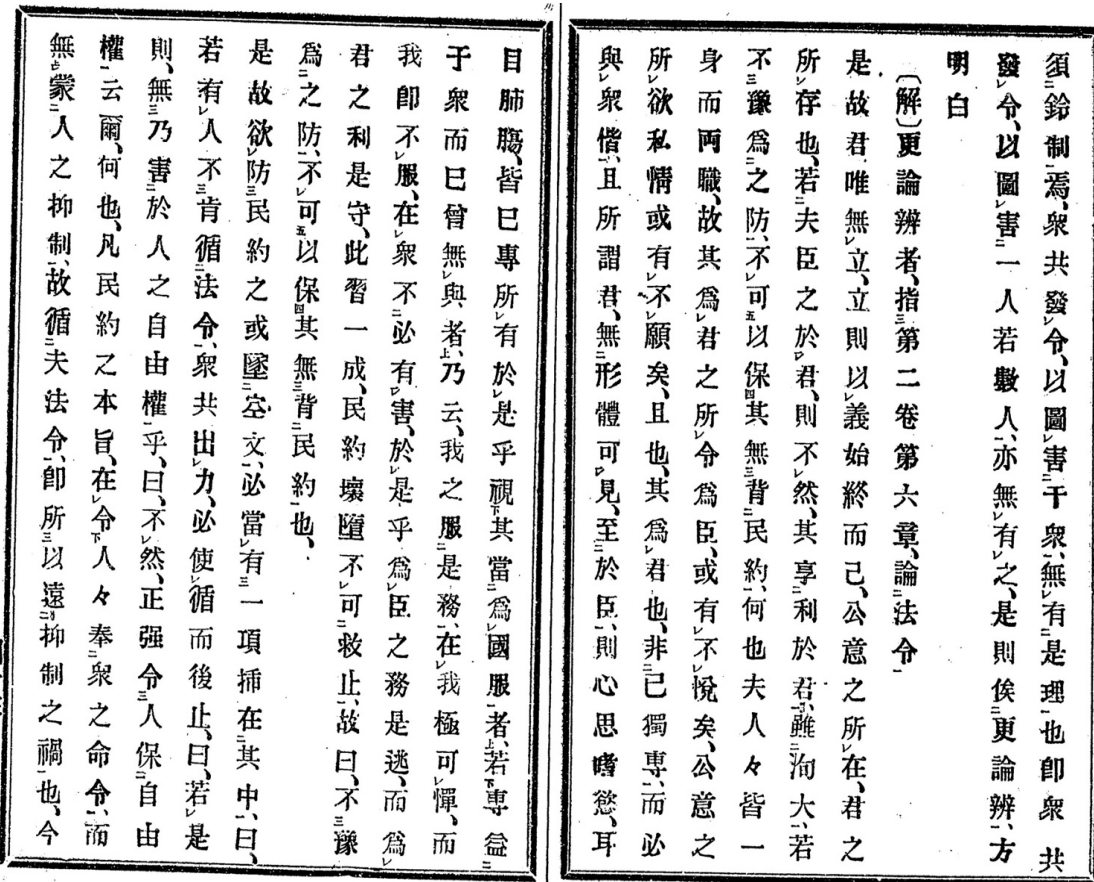 須鈴制焉、衆共發令、以圖害于衆、無有是理也卽衆共
發令、以圖害一人若數人、亦無有之、是則俟更論辨、方
明白
〔解〕更論辨者、指第二卷第六章、論法令
是故君唯無立、立則以義始終而已、公意之所在、君之
所存也、若夫臣之於君、則不然、其享利於君、雖洵大、若
不豫爲之防、不可以保其無背民約、何也夫人々皆一
身而兩職、故其爲君之所令爲臣、或有不悅矣、公意之
所欲私情或有不願矣、且也、其爲君也、非己獨專、而必
與衆偕、且所謂君、無形體可見、至於臣、則心思嗜慾、耳
目肺腸、皆已專所有於是乎視其當爲國服者、若專益
于衆而已曾無與者、乃云、我之服是務、在我極可憚、而
我卽不服、在衆不必有害、於是乎爲臣之務是逃、而爲
君之利是守、此習一成、民約壞墮不可救止、故曰、不豫
爲之防、不可以保其無背民約也、
是故欲防民約之或墜空文、必當有一項揷在其中、曰、
若有人不肯循法令、衆共出力、必使循而後止、曰、若是
則、無乃害於人之自由權乎、曰、不然、正强令人保自由
權云爾、何也、凡民約之本旨、在令人々奉衆之命令、而
無蒙人之抑制、故循夫法令、卽所以遠抑制之禍也、今